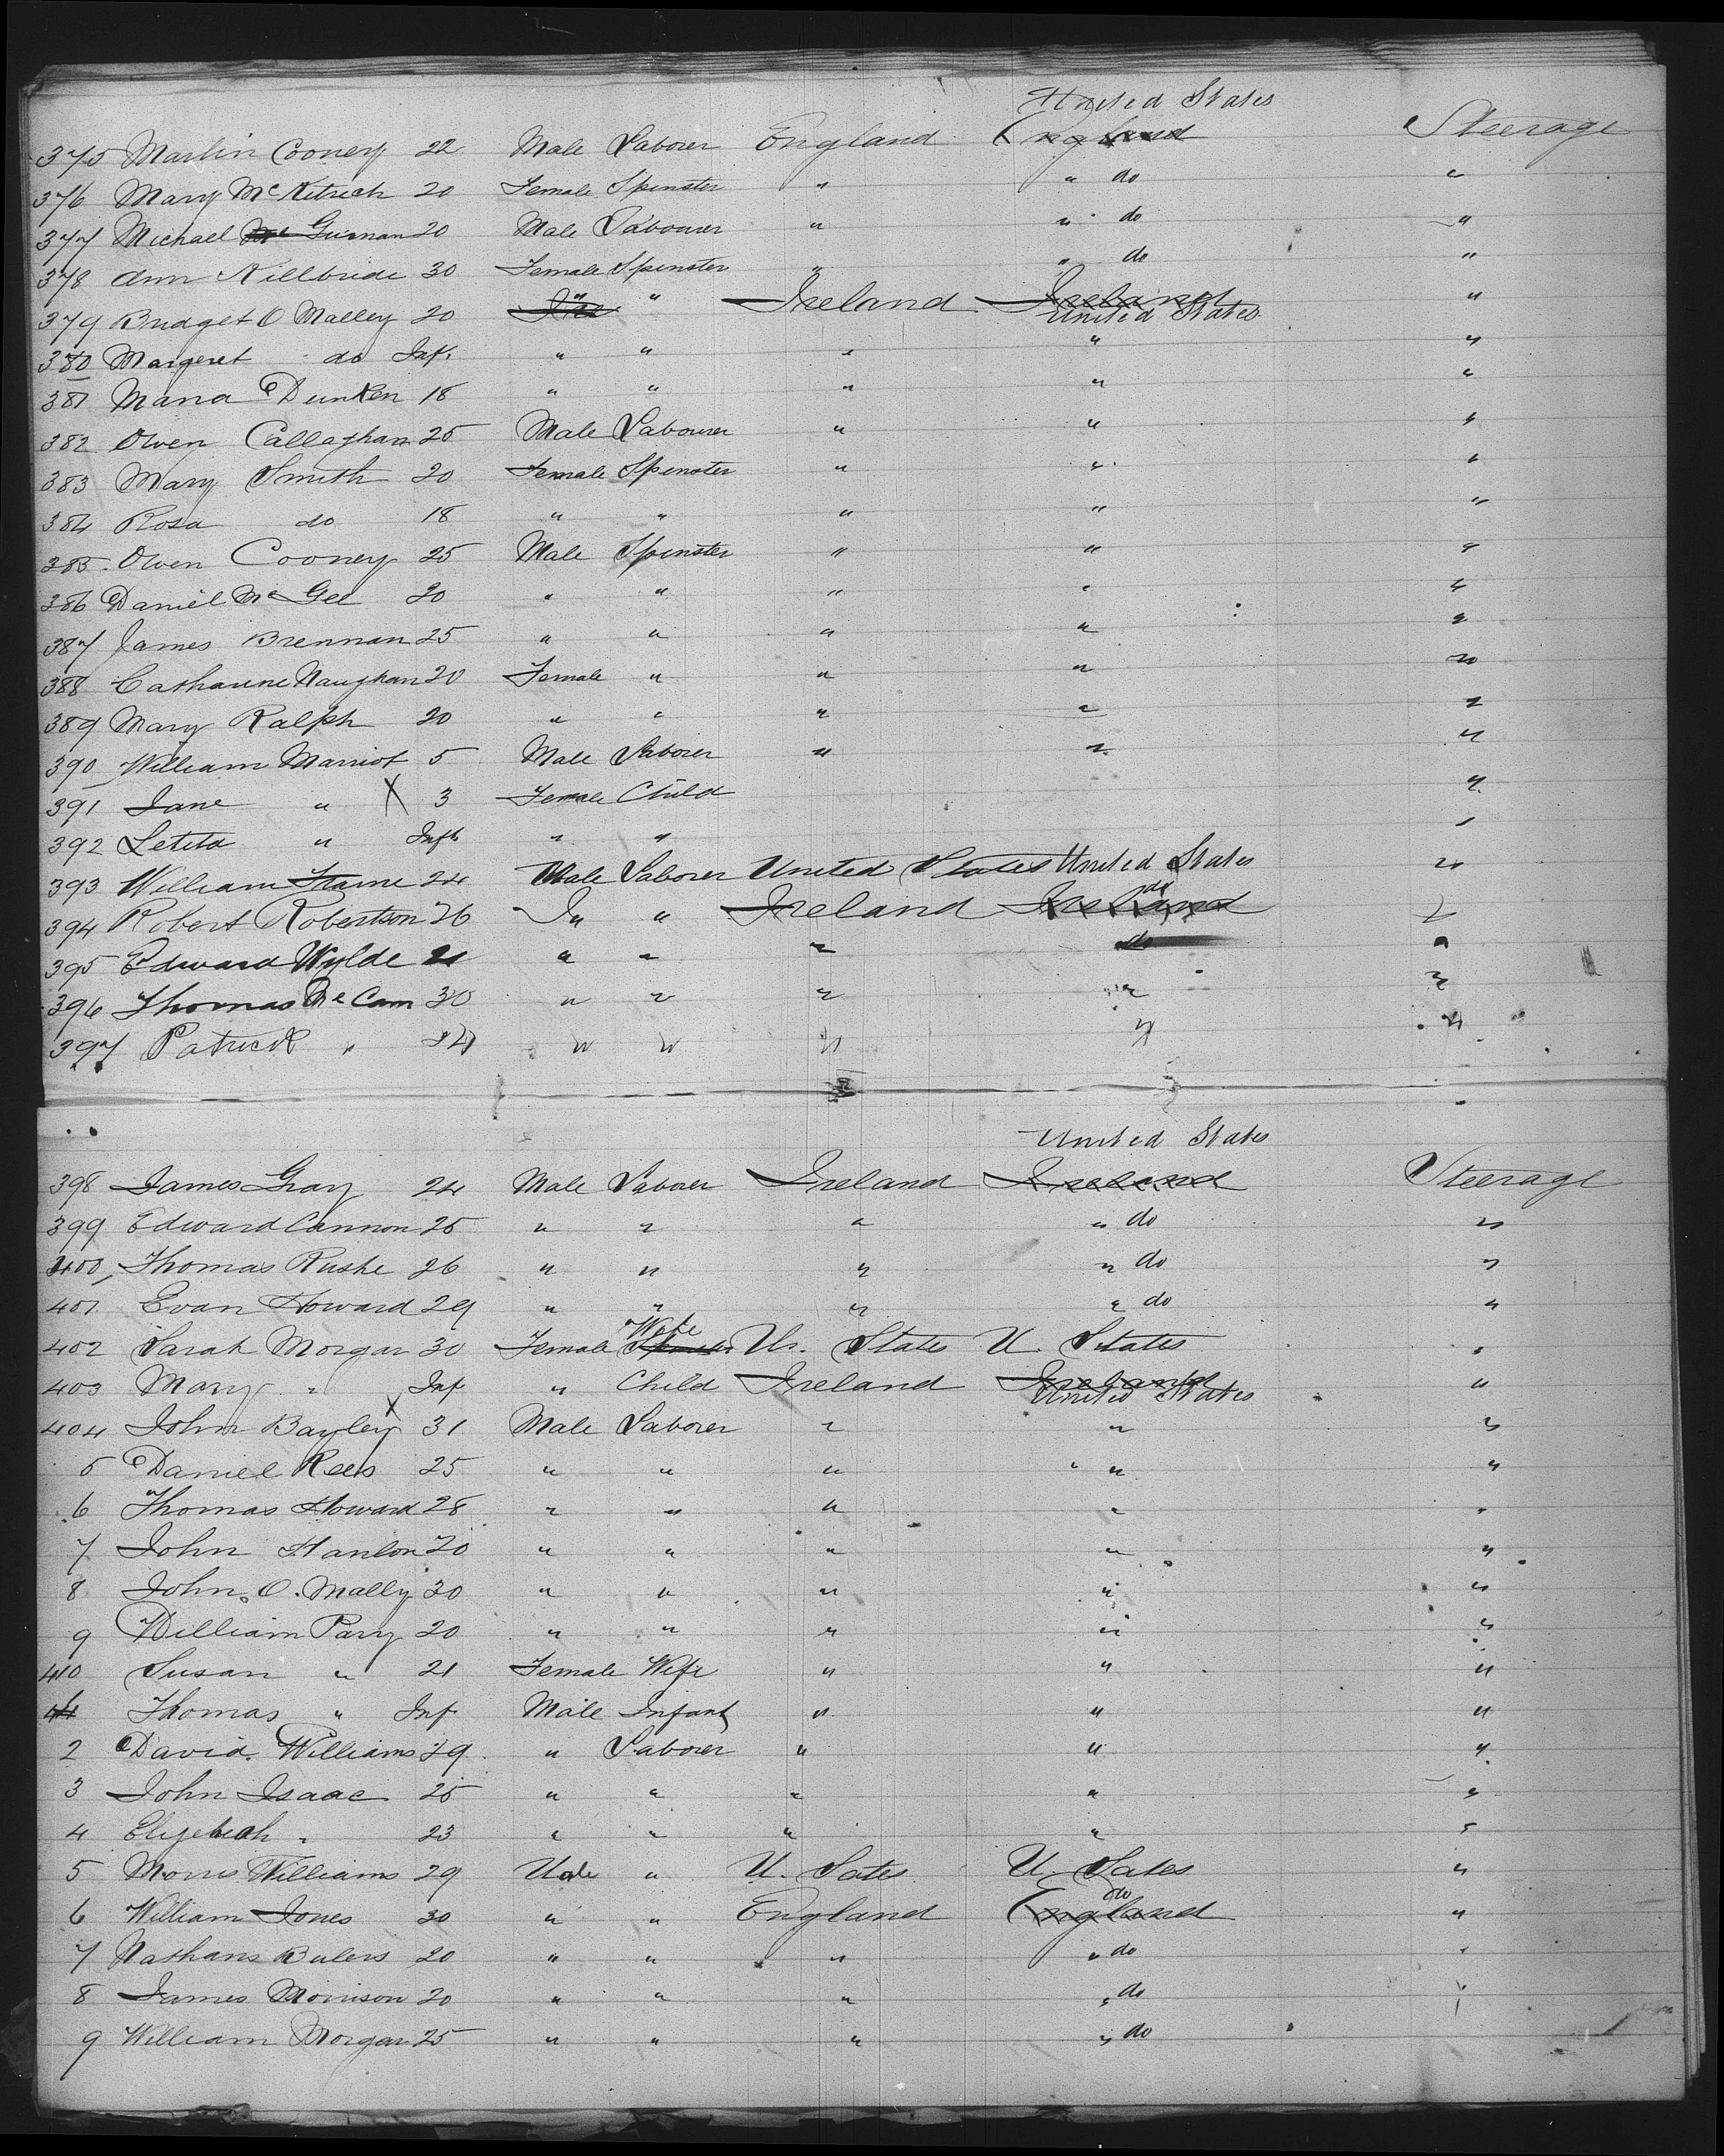 United States
375 Martin Cooney 22 Male Laborer England England Steerage
376 Mary McKitrich 20 Female Spinster " " do "
377 Michael Mc Guinan 20 Male Labourer " " do "
378 Ann Killbride 30 Female Spinster " " do "
379 Bridget O Malley 20 " " Ireland Ireland "
United States
380 Margeret do Inft " " " " "
381 Maria Dunken 18 " " " " "
382 Owen Callaghan 25 Male Labourer " " "
383 Mary Smith 20 Female Spinster " " "
384 Rosa do 18 " " " " "
385 Owen Cooney 25 Male Spinster " " "
386 Daniel McGee 20 " " " " "
387 James Brennan 25 " " " " "
388 Catharine Naughan 20 Female " " " "
389 Mary Ralph 20 " " " " "
390 William Marriot 5 Male Laborer " " "
391 Jane " X 3 Female Child "
392 Letita " Inft " " "
393 William Frame 24 Male Laborer United States United States "
do
394 Robert Robertson 26 " " Ireland Ireland "
395 Edward Wylde 21 " " " do "
396 Thomas McCam 30 " " " " "
397 Patrick " 24 " " " " "
United States
398 James Gray 24 Male Laborer Ireland Ireland Steerage
399 Edward Cannon 25 " " " " do "
400 Thomas Rushe 26 " " " " do "
401 Evan Howard 29 " " " " do "
Wife
402 Sarah Morgan 30 Female Spinster Us. State U. States "
403 Mary " Inf " Child Ireland Ireland "
United States
404 John Bayley X 31 Male Laborer " " "
5 Daniel Rees 25 " " " " "
6 Thomas Howard 28 " " " " "
7 John Hanlon 20 " " " " "
8 John O. Mally 30 " " " " "
9 William Pary 20 " " " " "
410 Susan " 21 Female Wife " " "
Thomas " Inf Male Infant " " "
2 David Williams 39 " Laborer " " "
3 John Isaac 25 " " " " "
4 Elizebeah " 23 " " " " "
5 Morris Williams 29 Male " U. Sates U. Sates "
do
6 William Jones 30 " " England England "
7 Nathans Bulers 20 " " " " do "
8 James Morrison 20 " " " " do "
9 William Morgan 25 " " " " do